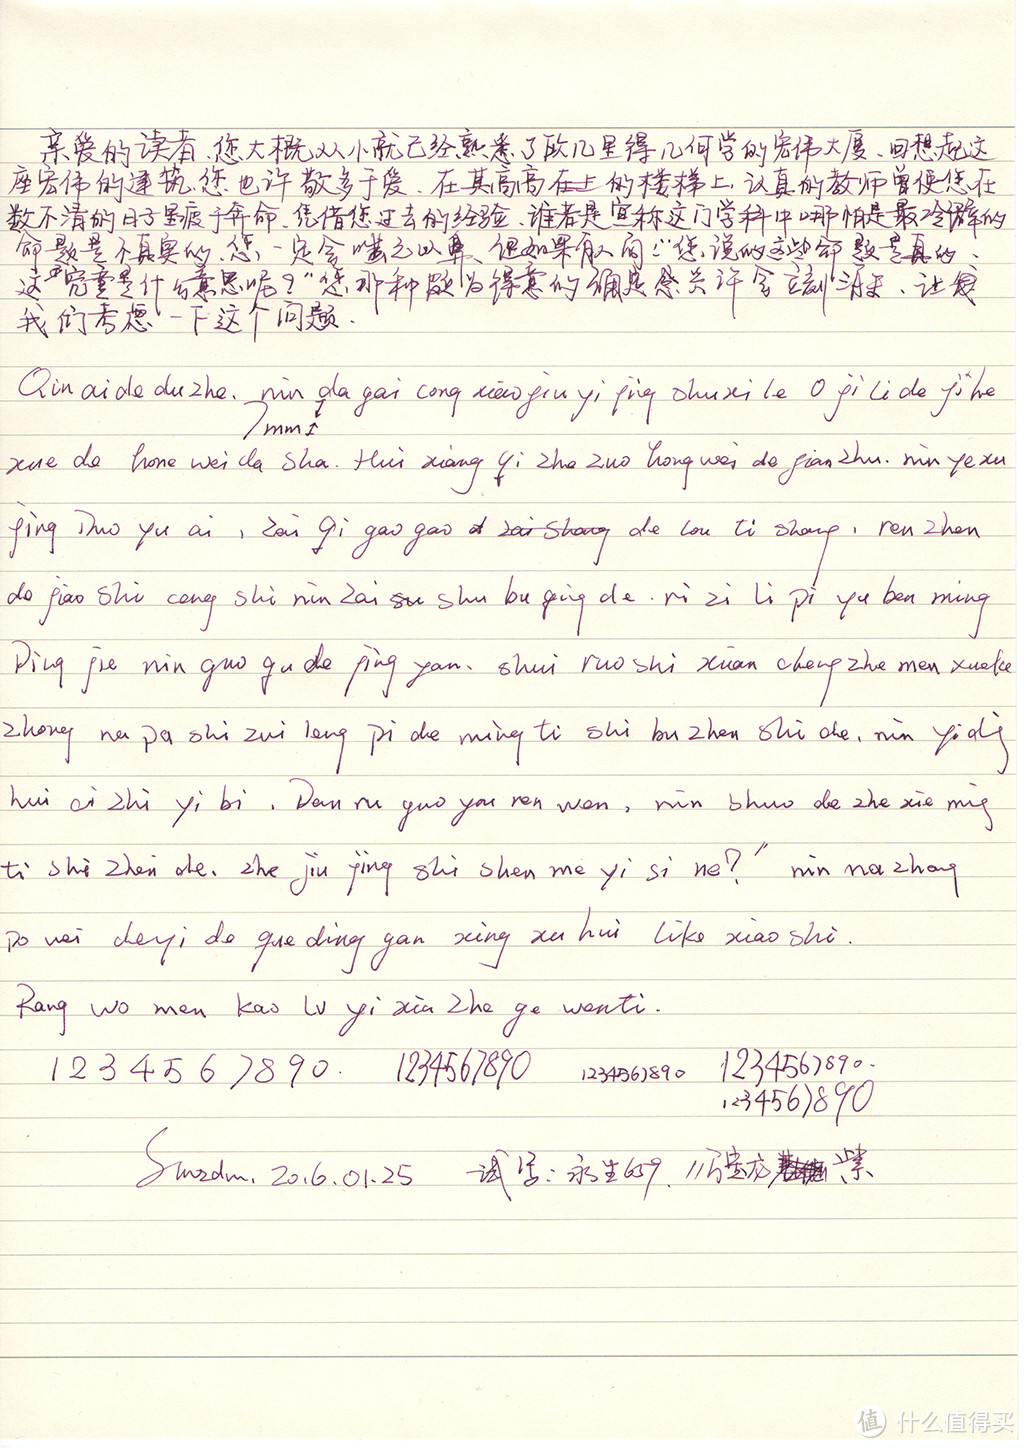 亲爱的读者、您大概从小就已经熟悉了欧几里得几何学的宏伟大厦、回想起这
座宏伟的建筑、您也许敬多于爱、在其高高在上的楼梯上,认真的教师曾使您在
数不清的日子里疲于奔命、凭借您过去的经验、谁若是宣称这门学科中哪怕是最冷僻的
命题是不真实的、您一定会嗤之以鼻、但如果有人问:"您说的这些命题是真的、
这究竟是什么意思呢?"您那种颇为得意的确定感兴许会立刻消失、让
我们考虑一下这个问题.
Qin ai de du zhe. nin da gai cong xiao jiu yi jing shu xi le O ji li de ji he
7mm
xue de hone wei da sha. Hui xiang qi zhe zuo hong wei de jian zhu. nin ye xu
jing Duo yu ai , zai qi gao gao zai shang de lou ti shang , ren zhen
de jiao shi ceng shi nin zai su shu bu qing de . ri zi li pi yu ben ming
Ping jie nin guo qu de jing yan. shui ruo shi xuan cheng zhe men xueke
zhong na pa shi zui leng pi de ming ti shi bu zhen shi de. nin yi dig
hui ci zhi yi bi . Dan ru guo you ren wen , nin shuo de zhe xie mig
ti shi zhen de. zhe jiu jing shi shen me yi si ne?" nin na zhong
po wei deyi de que ding gan xing xu hui like xiao shi.
Rang wo men kao lv yi xia zhe ge wenti.
1 2 3 4 5 6 7 8 9 0. 1234567890 1234567890 1234567890.
1234567890
Smzdm. 2016.01.25 试写:永生659. 万宝龙 紫
值 什么值得买